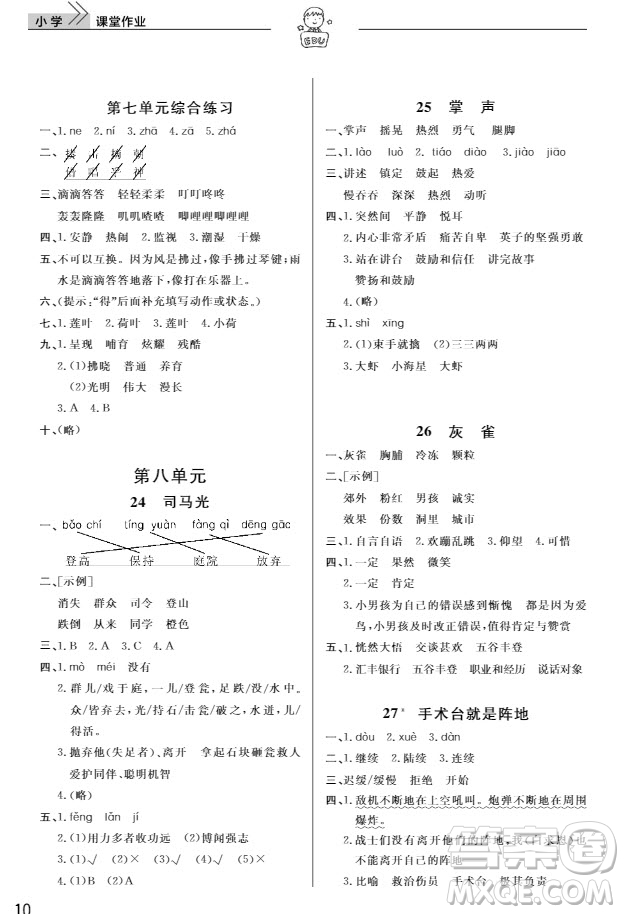 小学
课堂作业
EDU
第七单元综合练习
一、1.ne 2.ní 3.zhā 4.zhā 5.zhá
二、搭 扇 摘 朝
唱 平 神
三、滴滴答答 轻轻柔柔 叮叮咚咚
轰轰隆隆 叽叽喳喳 唧哩哩唧哩
四、1.安静 热闹 2.监视 3.潮湿 干燥
五、不可以互换。因为风是拂过,像手拂过琴键;雨
水是滴滴答答地落下,像打在乐器上。
六、(提示:“得”后面补充填写动作或状态。)
七、1.莲叶 2.荷叶 3.莲叶 4.小荷
九、1.呈现 哺育 炫耀 残酷
2.(1)拂晓 普通 养育
(2)光明 伟大 漫长
3.A 4.B
十、(略)
第八单元
24 司马光
一、bǎo chí tíng yuàn fàng qì dēng gāo
登高 保持 庭院 放弃
二、[示例]
消失 群众 司令 登山
跌倒 从来 同学 橙色
三、1.B 2.A 3.C 4.A
四、1.mò méi 没有
2.群儿/戏于庭,一儿/登瓮,足跌/没水中。
众/皆弃去,光/持石/击瓮/破之,水迸,儿/
得活。
3.抛弃他(失足者)、离开 拿起石块砸瓮救人
爱护同伴、聪明机智
4.(略)
五、1.fēng lǎn jí
2.(1)用力多者收功远 (2)博闻强志
3.(1)√ (2)× (3)√ (4)√ (5)×
4.(略)
25 掌 声
一、掌声 摇晃 热烈 勇气 腿脚
二、1.lào luò 2.tiáo diào 3.jiào jiāo
三、讲述 镇定 鼓起 热爱
慢吞吞 深深 热烈 动听
四、1.突然间 平静 悦耳
2.内心非常矛盾 痛苦自卑 英子的坚强勇敢
3.站在讲台 鼓励和信任 讲完故事
赞扬和鼓励
4.(略)
五、1.shì xīng
2.(1)束手就擒 (2)三三两两
3.大虾 小海星 大虾
26 灰 雀
一、灰雀 胸脯 冷冻 颗粒
二、[示例]
郊外 粉红 男孩 诚实
效果 份数 洞里 城市
三、1.自言自语 2.欢蹦乱跳 3.仰望 4.可惜
四、1.一定 果然 微笑
2.一定 肯定
3.小男孩为自己的错误感到惭愧 小男孩是个爱
鸟,小男孩及时改正错误,列宁对他肯定与赞赏
五、1.恍然大悟 交谈甚欢 五谷丰登
2.汇丰银行 五谷丰登 职业和经历 历史故事
27* 手术台就是阵地
一、1.dòu 2.xuè 3.dàn
二、1.继续 2.陆续 3.连续
三、迟缓/缓慢 拒绝 开始
四、1.敌机不断地在上空吼叫。炮弹不断地在周围
爆炸。
2.战士们没有离开他们的阵地,我(白求恩)也
不能离开自己的阵地
3.比喻 救治伤员 手术台 极其负责
10